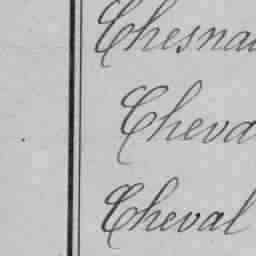 Chesnau
Cheva
Cheval